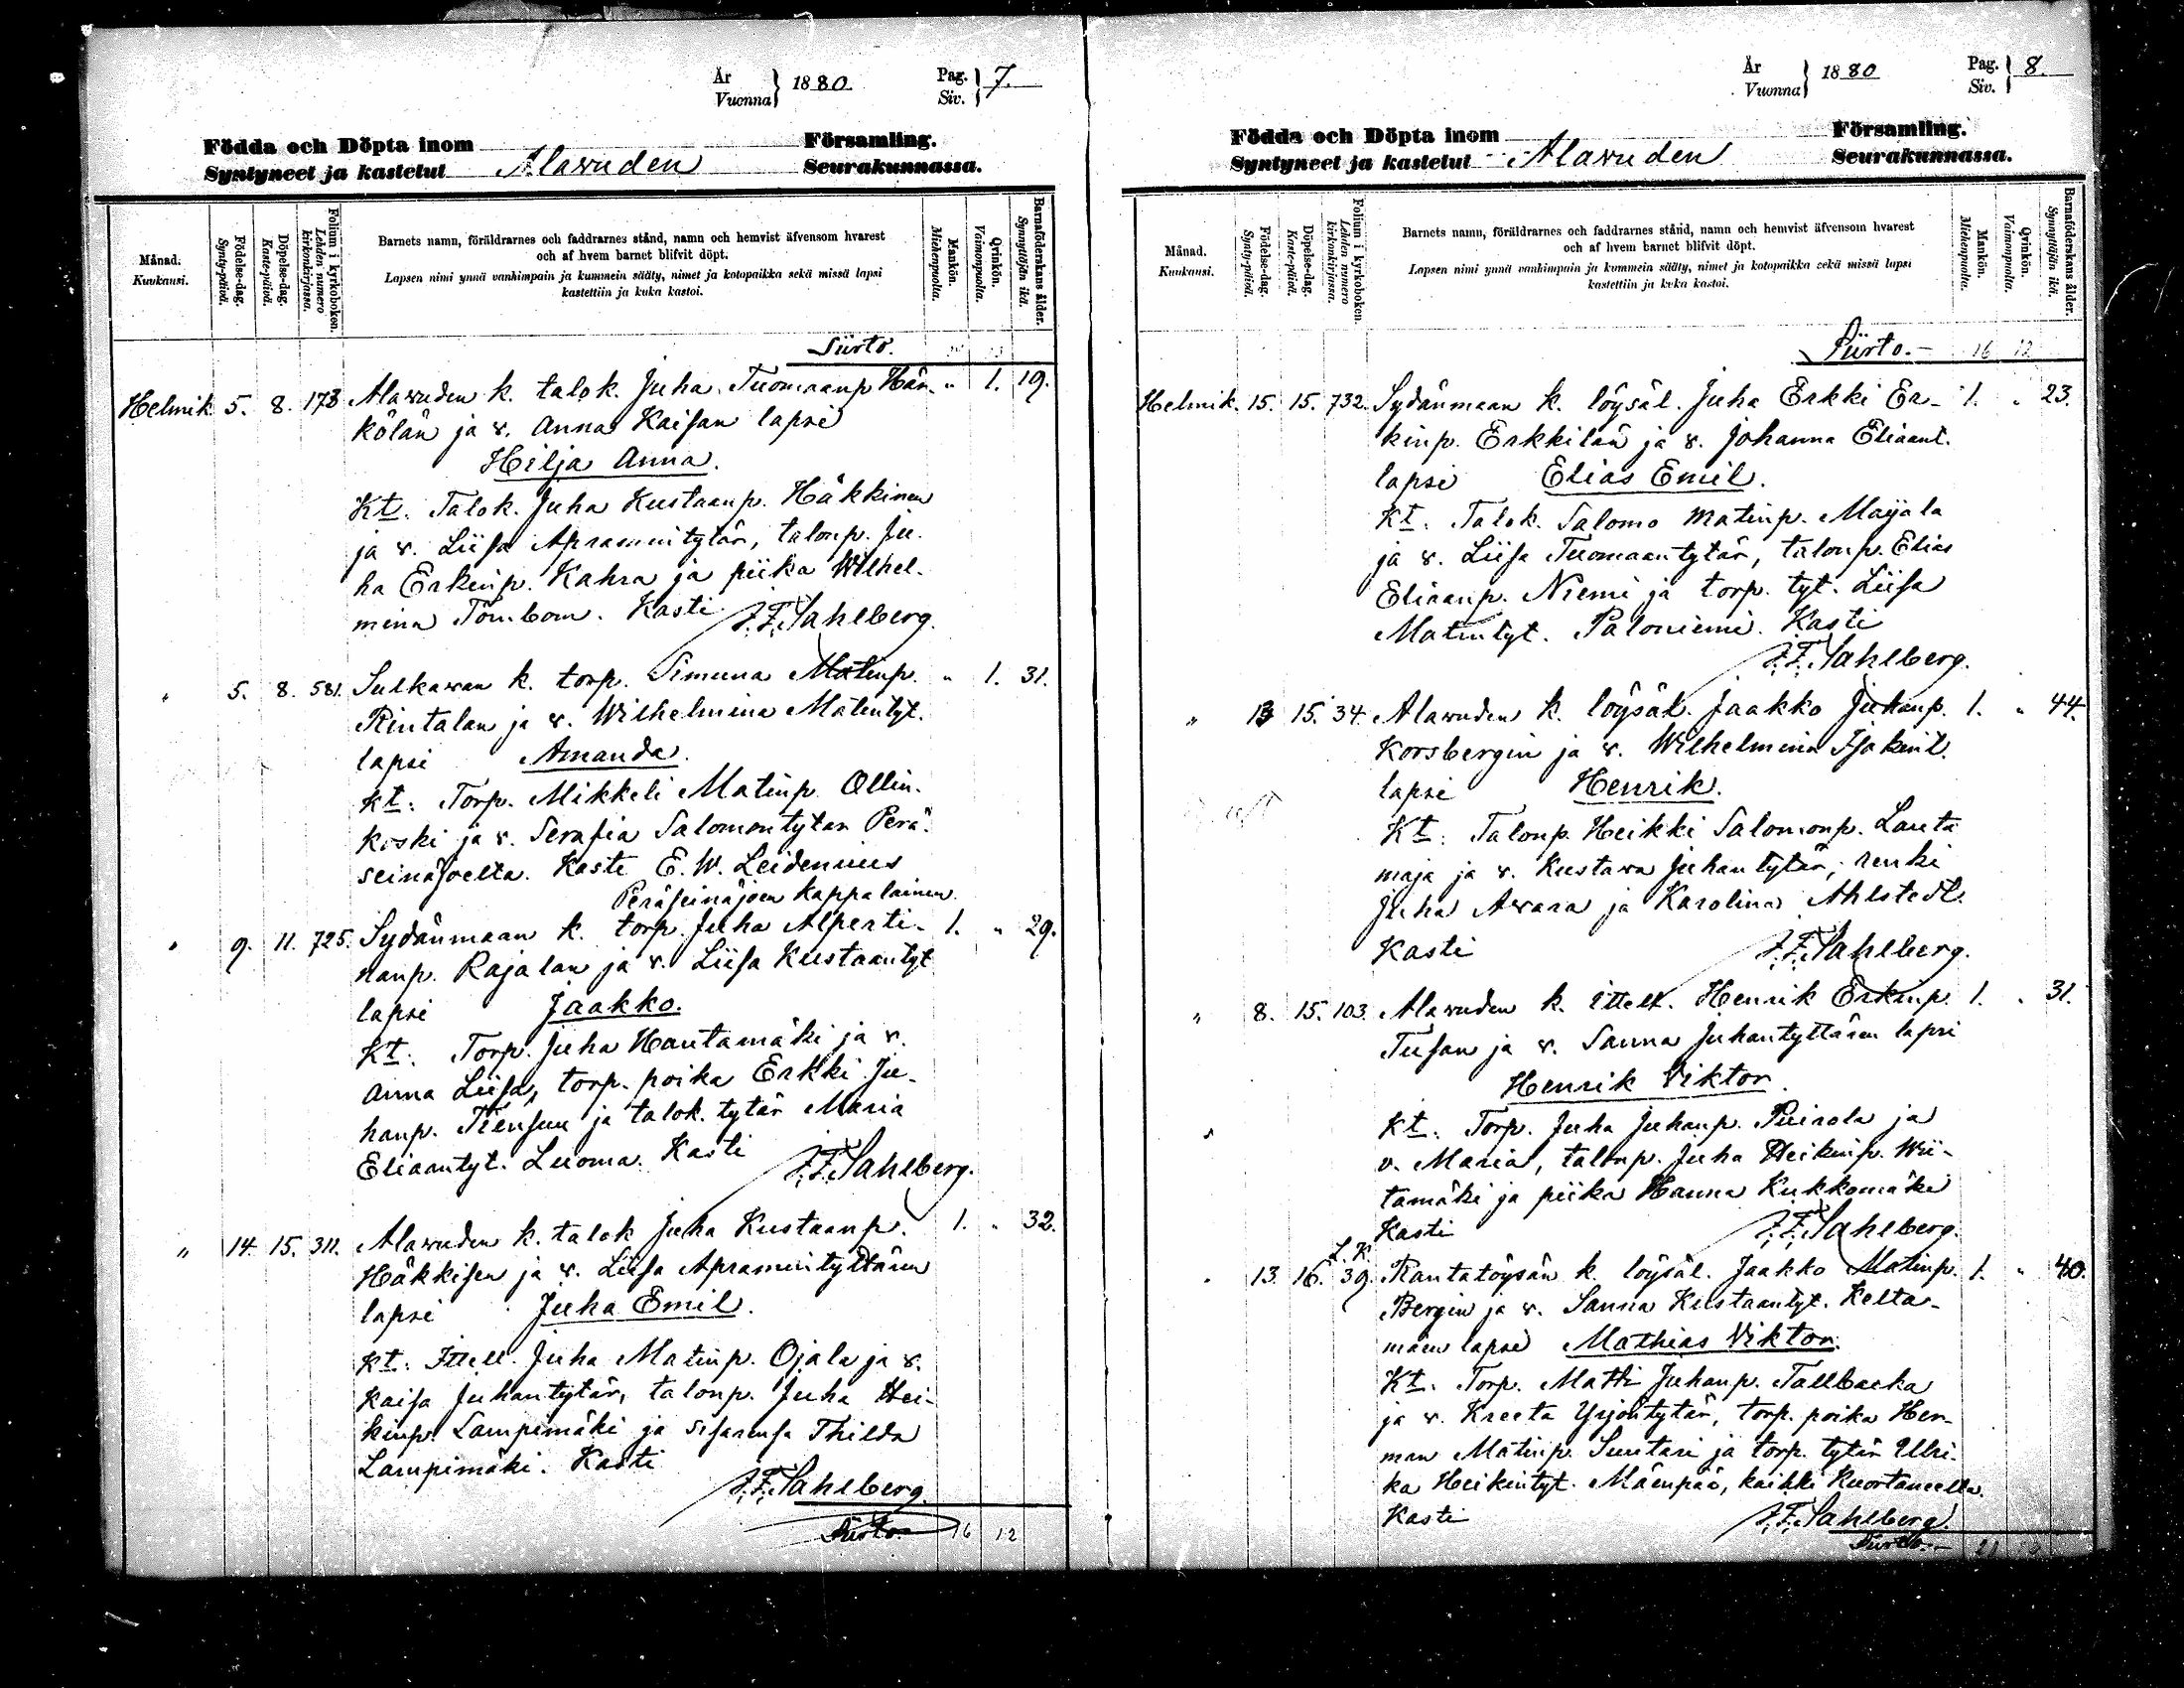 År
Vuonna } 1880. Pag. Siv. } 7.
Födda och Döpta inom Församling.
Syntyneet ja kastetut Alavuden Seurakunnassa.
Månad. Kuukausi.
Födelse-dag. Synty-päivä.
Döpelse-dag. Kaste-päivä.
Folium i kyrkoboken. Lehden numero kirkonkirjassa.
Barnets namn, föräldrarnes och faddrarnes stånd, namn och hemvist äfvensom hvarest
och af hvem barnet blifvit döpt.
Lapsen nimi ynnä vanhimpain ja kummein sääty, nimet ja kotopaikka sekä missä lapsi
kastettiin ja kuka kastoi.
Mankön. Miehenpuolta.
Qvinkön. Vaimonpuolta.
Barnaföderskans ålder. Synnyttäjän ikä.
Siirto.
Helmik. 5. 8. 173 Alavuden k. talok. Juha Tuomaanp. Här- " 1. 19.
kölän ja v. Anna Kaisan lapsi
Hilja Anna.
Kt. Talok. Juha Kustaanp. Häkkinen
ja v. Liisa Apramintytär, talonp. Ju-
ha Erkinp. Kahra ja piika Wilhel-
mina Törnbom. Kasti J.F. Sahlberg.
" 5. 8. 581. Sulkavan k. torp. Simuna Matinp. " 1. 31.
Rintalan ja v. Wilhelmina Matintyt.
lapsi Amanda.
Kt: Torp. Mikkeli Matinp. Ollin-
koski ja v. Serafia Salomontytär Perä-
seinäjoelta. Kaste E. W. Leidenius
Peräseinäjoen kappalainen.
" 9. 11. 725. Sydänmaan k. torp. Juha Alperti- 1. " 29.
nanp. Rajalan ja v. Liisa Kustaantyt.
lapsi Jaakko.
Kt: Torp. Juha Hautamäki ja v.
Anna Liisa, torp. poika Erkki Ju-
hanp. Tiensuu ja talok. tytär Maria
Eliaantyt. Luoma. Kasti J.F. Sahlberg.
" 14. 15. 311. Alavuden k. talok. Juha Kustaanp. 1. " 32.
Häkkisen ja v. Liisa Apramintyttären
lapsi Juha Emil.
Kt: Ittell. Juha Matinp. Ojala ja v.
Kaisa Juhantytär, talonp. Juha Hei-
kinp. Lampimäki ja sisarensa Thilda
Lampimäki. Kasti
J.F. Sahlberg.
Siirto. 16 12
År
Vuonna } 1880 Pag. Siv. } 8.
Födda och Döpta inom Församling.
Syntyneet ja kastetut Alavuden Seurakunnassa.
Månad. Kuukausi.
Födelse-dag. Synty-päivä.
Döpelse-dag. Kaste-päivä.
Folium i kyrkoboken. Lehden numero kirkonkirjassa.
Barnets namn, föräldrarnes och faddrarnes stånd, namn och hemvist äfvensom hvarest
och af hvem barnet blifvit döpt.
Lapsen nimi ynnä vanhimpain ja kummein sääty, nimet ja kotopaikka sekä missä lapsi
kastettiin ja kuka kastoi.
Mankön. Miehenpuolta.
Qvinkön. Vaimonpuolta.
Barnaföderskans ålder. Synnyttäjän ikä.
Siirto.- 16 12
Helmik. 15. 15. 732. Sydänmaan k. löysäl. Juha Erkki Er- 1. " 23.
kinp. Erkkilän ja v. Johanna Eliaant.
lapsi Elias Emil.
Kt. Talok. Salomo Matinp. Mayala
ja v. Liisa Tuomaantytär, talonp. Elias
Eliaanp. Niemi ja torp. tyt. Liisa
Matintyt. Paloniemi. Kasti
J.F. Sahlberg.
" 13 15. 34. Alavuden k. löysäl. Jaakko Juhanp. 1. " 44.
Korsbergin ja v. Wilhelmina Isakint.
lapsi Henrik.
Kt: Talonp. Heikki Salomonp. Lauta
maja ja v. Kustava Juhantytär, renki
Juha Avara ja Karolina Ahlstedt.
Kasti J.F. Sahlberg.
" 8. 15. 103. Alavuden k. ittell. Henrik Erkinp. 1. " 31.
Tusan ja v. Sanna Juhantyttären lapsi
Henrik Viktor.
Kt: Torp. Juha Juhanp. Puirola ja
v. Maria, talonp. Juha Heikinp. Wii-
tamäki ja piika Hanna Kukkomäki
Kasti J.F. Sahlberg.
L.K.
" 13. 16. 39. Rantatöysän k. löysäl. Jaakko Matinp. 1. " 40.
Bergin ja v. Sanna Kustaantyt. Kelta-
mäen lapsi Mathias Viktor.
Kt. Torp. Matti Juhanp. Tallbacka
ja v. Kreeta Yrjöntytär, torp. poika Her-
man Matinp. Suutari ja torp. tytär Ulri-
ka Heikintyt. Mäenpää, kaikki Kuortaneella.
Kasti J.F. Sahlberg.
Siirto.- 21